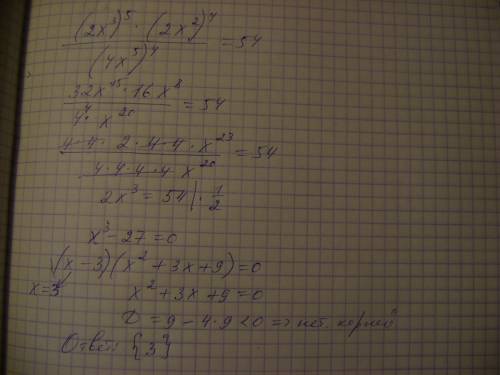 (2x³)⁵ · (2x²)⁴ / (4x⁵)⁴ = 54
32x¹⁵ · 16x⁸ / 4⁴ · x²⁰ = 54
4·4·2·4·4·x²³ / 4·4·4·4 x²⁰ = 54
2x³ = 54 | · 1/2
x³ - 27 = 0
(x - 3)(x² + 3x + 9) = 0
x = 3 x² + 3x + 9 = 0
D = 9 - 4·9 < 0 => нет. корней
Ответ: {3}